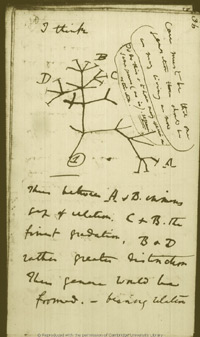 36
I think
Case must be that one
generation then should be
as many living as now
To do this & to have many species in
same genus (as is) requires
extinction
B
D
C
A
1
Thus between A & B. immens
gap of relation. C & B. the
finest gradation, B & D
rather greater distinction
Thus genera would be
formed. — bearing relation
© Reproduced with the permission of Cambridge University Library